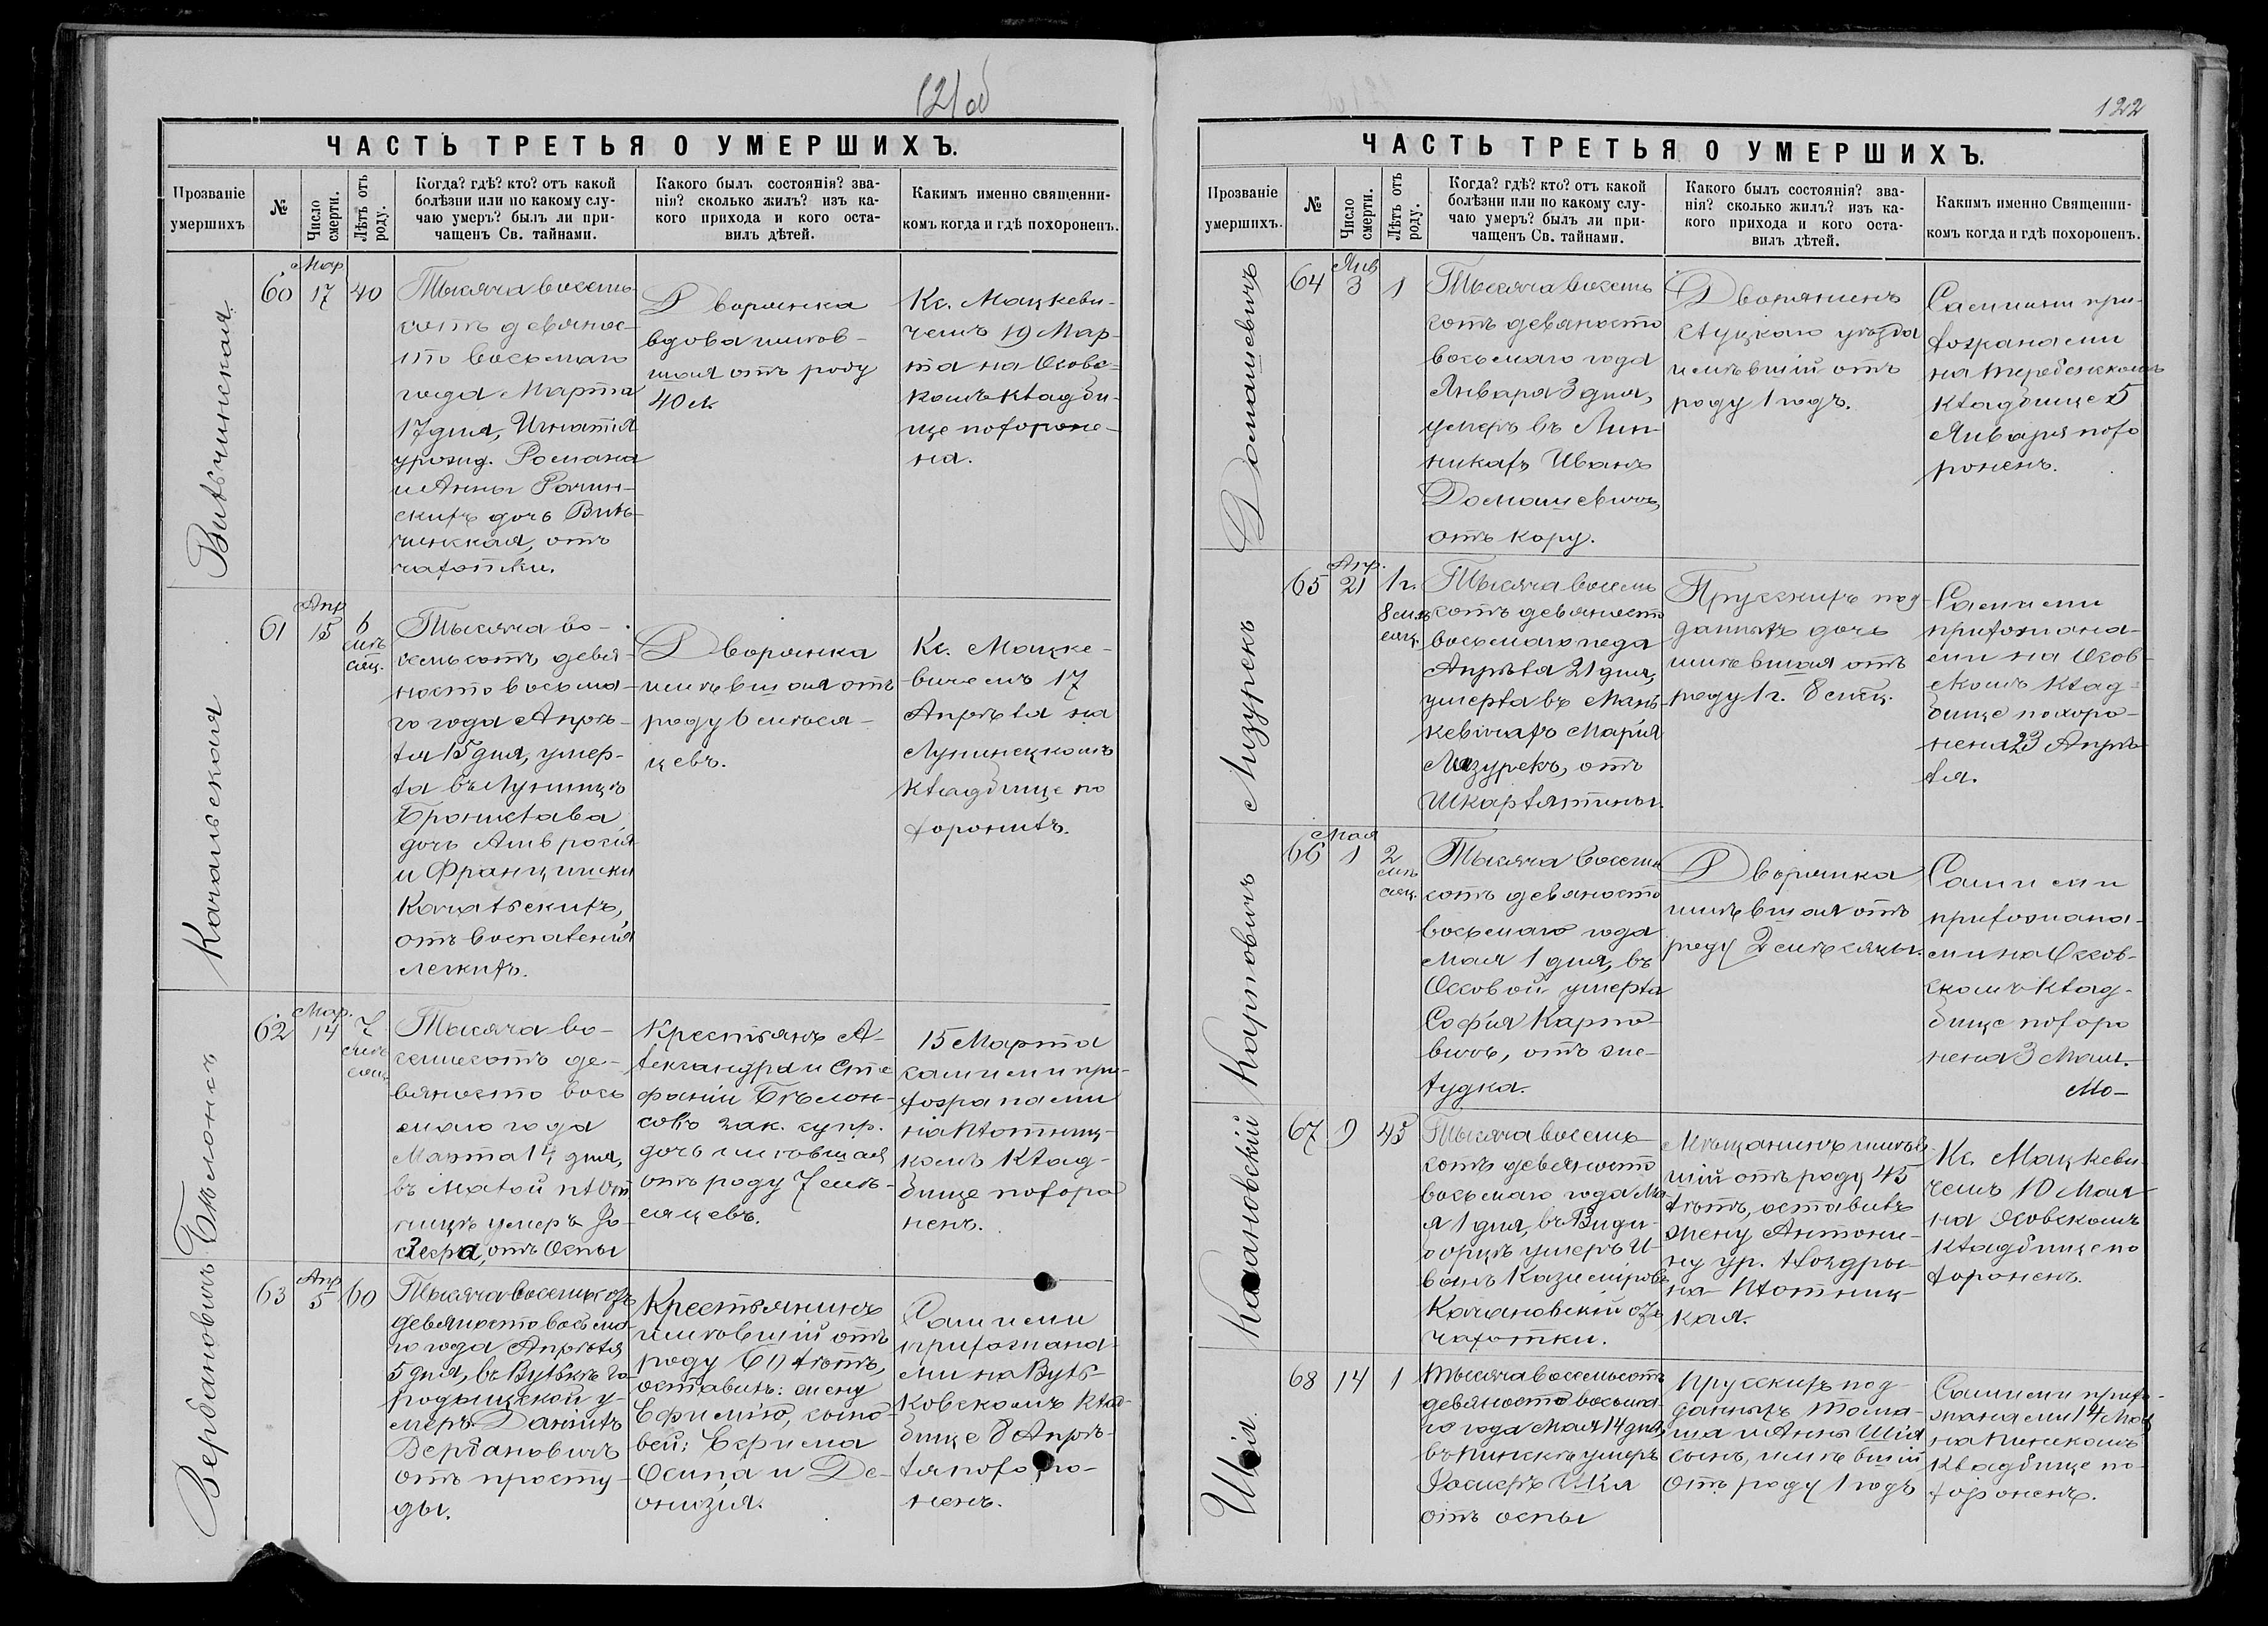 121об
ЧАСТЬ ТРЕТЬЯ О УМЕРШИХЪ.
Прозваніе
умершихъ
№
Число
смерти.
Лѣтъ отъ
роду.
Когда? гдѣ? кто? отъ какой
болѣзни или по какому слу-
чаю умеръ? былъ ли при-
чащенъ Св. тайнами.
Какого былъ состоянія? зва-
нія? сколько жилъ? изъ ка-
кого прихода и кого оста-
вилъ дѣтей.
Какимъ именно священни-
комъ когда и гдѣ похороненъ.
Вильчинская
60
Мар
17
40
Тысяча восемь
сотъ девянос-
то восьмаго
года Марта
17 дня, Игнатія
урожд. Романа
и Анны Рачин-
скихъ дочь Виль-
чинская, отъ
чахотки.
Дворянка
вдова имѣв-
шая отъ роду
40 л.
Кс. Мацкеви-
чемъ 19 Мар-
та на Осовс-
комъ кладби-
ще похороне-
на.
Качальская
61
Апр
15
6
мѣ
сяц.
Тысяча во-
семьсотъ девя-
носто восьма-
го года Апрѣ-
ля 15 дня, умер-
ла въ Лунинцѣ
Бронислава
дочь Амвросія
и Францишки
Качальскихъ,
отъ воспаленія
легкихъ.
Дворянка
имѣвшая отъ
роду 6 мѣся-
цевъ.
Кс. Мацке-
вичемъ 17
Апрѣля на
Лунинецкомъ
кладбище по
хоронилъ.
Бѣлонсъ
62
Мар.
14
7
мѣ
сяц.
Тысяча во-
семьсотъ де-
вяносто вось
маго года
Марта 14 дня,
въ Малой Плот
ницѣ умеръ Jo-
отъ Оспы
Крестьянъ А-
лександра и Сте
фаніи Бѣлон-
совъ зак. супр.
дочь имѣвшая
отъ роду 7 мѣ-
сяцевъ.
15 Марта
самими при-
хожанами
на Плотниц-
комъ клад-
бище похоро
ненъ.
Вербановичъ
63
Апр
5
60
Тысяча восемьсотъ
девяносто восьма-
го года Апрѣля
5 дня, въ Вулькѣ Го
родищской у-
меръ Даніилъ
Вербановичъ
отъ просту-
ды.
Крестьянинъ
имѣвшій отъ
роду 60 лѣтъ,
оставилъ: жену
Ефимію, сыно
вей: Ефима
Осипа и Де-
онизія.
Самими
прихожана-
ми на Вуль-
ковскомъ клад
бище 8 Апрѣ-
ля похоро-
ненъ.
122
ЧАСТЬ ТРЕТЬЯ О УМЕРШИХЪ.
Прозваніе
умершихъ.
№
Число
смерти.
Лѣтъ отъ
роду.
Когда? гдѣ? кто? отъ какой
болѣзни или по какому слу-
чаю умеръ? былъ ли при-
чащенъ Св. тайнами.
Какого былъ состоянія? зва-
нія? сколько жилъ? изъ ка-
кого прихода и кого оста-
вилъ дѣтей.
Какимъ именно Священни-
комъ когда и гдѣ похороненъ.
Домашевичъ
64
Янв
3
1
Тысяча восемь
сотъ девяносто
восьмаго года
Января 3 дня,
умеръ въ Лип-
никахъ Иванъ
Домашевичъ,
отъ кору.
Дворянинъ
Слуцкаго уѣзда
имѣвшій отъ
роду 1 годъ.
Самими при-
хожанами
на Теребежскомъ
кладбище 5
Января похо
роненъ.
Мазурекъ
65
Апр.
21
1 г.
8 мѣ
сяц.
Тысяча восемь
сотъ девяносто
восьмаго года
Апрѣля 21 дня,
умерла въ Мань
кевичахъ Марія
Мазурекъ, отъ
Шкарлятины.
Прусскихъ под-
данныхъ дочь
имѣвшая отъ
роду 1 г. 8 мѣц.
Самими
прихожана-
ми на Осов-
скомъ клад-
бище похоро-
нена 23 Апрѣ-
ля.
Карповичъ
66
Мая
1
2
мѣ
сяц.
Тысяча восемь
сотъ девяносто
восьмаго года
Мая 1 дня, въ
Осовой умерла
Софія Карпо-
вичъ, отъ же-
лудка.
Дворянка
имѣвшая отъ
роду 2 мѣсяцы.
Самими
прихожана-
ми на Осов-
скомъ клад-
бище похоро
нена 3 Мая.
Мо-
Качановскій
67
9
45
Тысяча восемь-
сотъ девяносто
восьмаго года Ма-
я 1 дня, въ Види-
борцѣ умеръ И-
ванъ Казиміровъ
Качановскій отъ
чахотки.
Мѣщанинъ имѣв-
шій отъ роду 45
лѣтъ, оставилъ
жену Антони-
ну ур. Ноздры-
на- Плотниц-
кая.
Кс. Мацкеви-
чемъ 10 Мая
на Осовскомъ
кладбище по
хороненъ.
68
14
1
Тысяча восемьсотъ
девяносто восьма-
го года Мая 14 дня,
въ Пинскѣ умеръ
отъ оспы
Прусскихъ под-
данныхъ Тома-
ша и Анны
сынъ, имѣвшій
отъ роду 1 годъ
Самими прихо-
жанами 14 Мая
на Пинскомъ
кладбище по-
хороненъ.